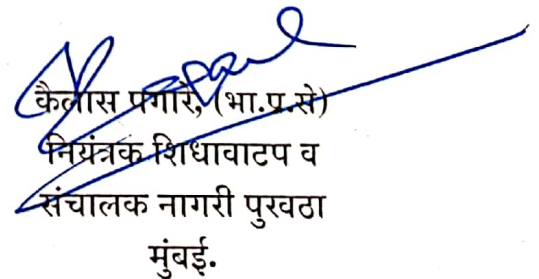 कैलास पगारे, (भा.प्र.से)
नियंत्रक शिधावाटप व
संचालक नागरी पुरवठा
मुंबई.